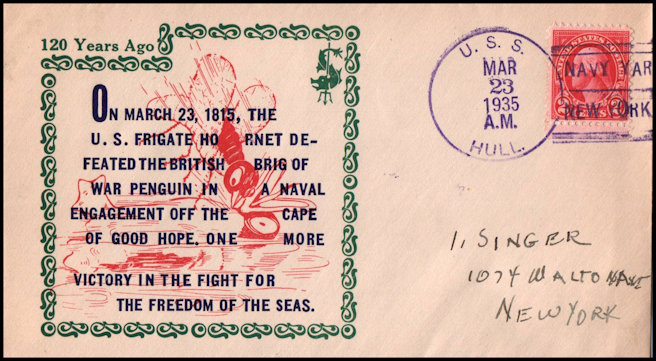 120 Years Ago
ON MARCH 23, 1815, THE
U. S. FRIGATE HO RNET DE-
FEATED THE BRITISH BRIG OF
WAR PENGUIN IN A NAVAL
ENGAGEMENT OFF THE CAPE
OF GOOD HOPE. ONE MORE
VICTORY IN THE FIGHT FOR
THE FREEDOM OF THE SEAS.
U. S. S.
MAR
23
1935
A.M.
HULL.
NAVY YAR
NEW YORK
I. SINGER
1074 WALTON AVE
NEW YORK